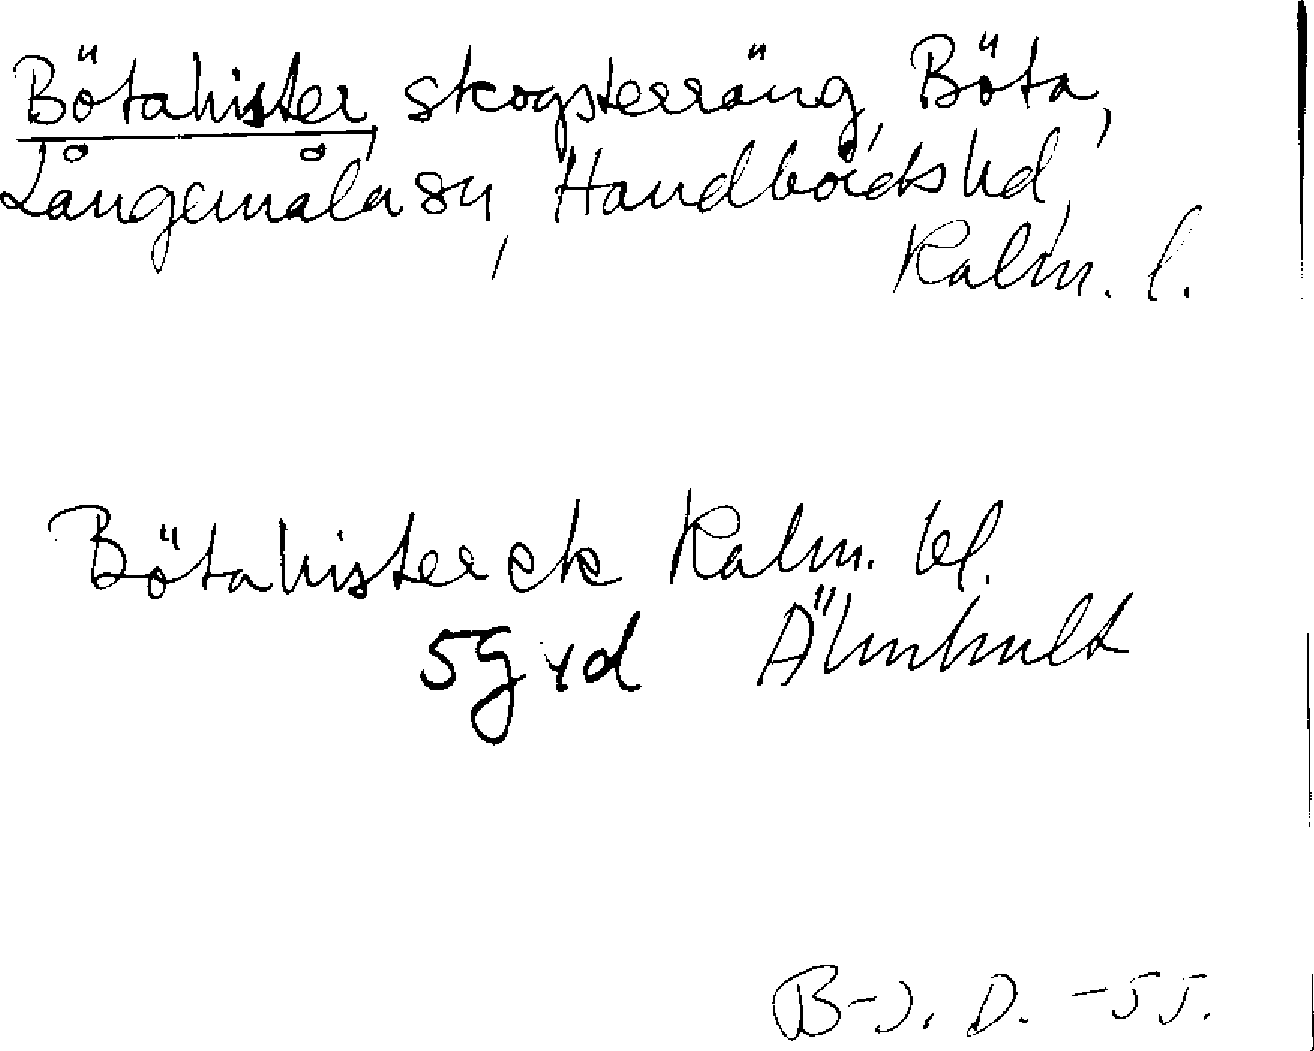 Bötahister, skogsterräng, Böta,
Långemåla sn, Handbörds hd,
Kalm. l.
Bötahister ek Kalm. bl.
5g vd Älmhult
B-J. D. -55.